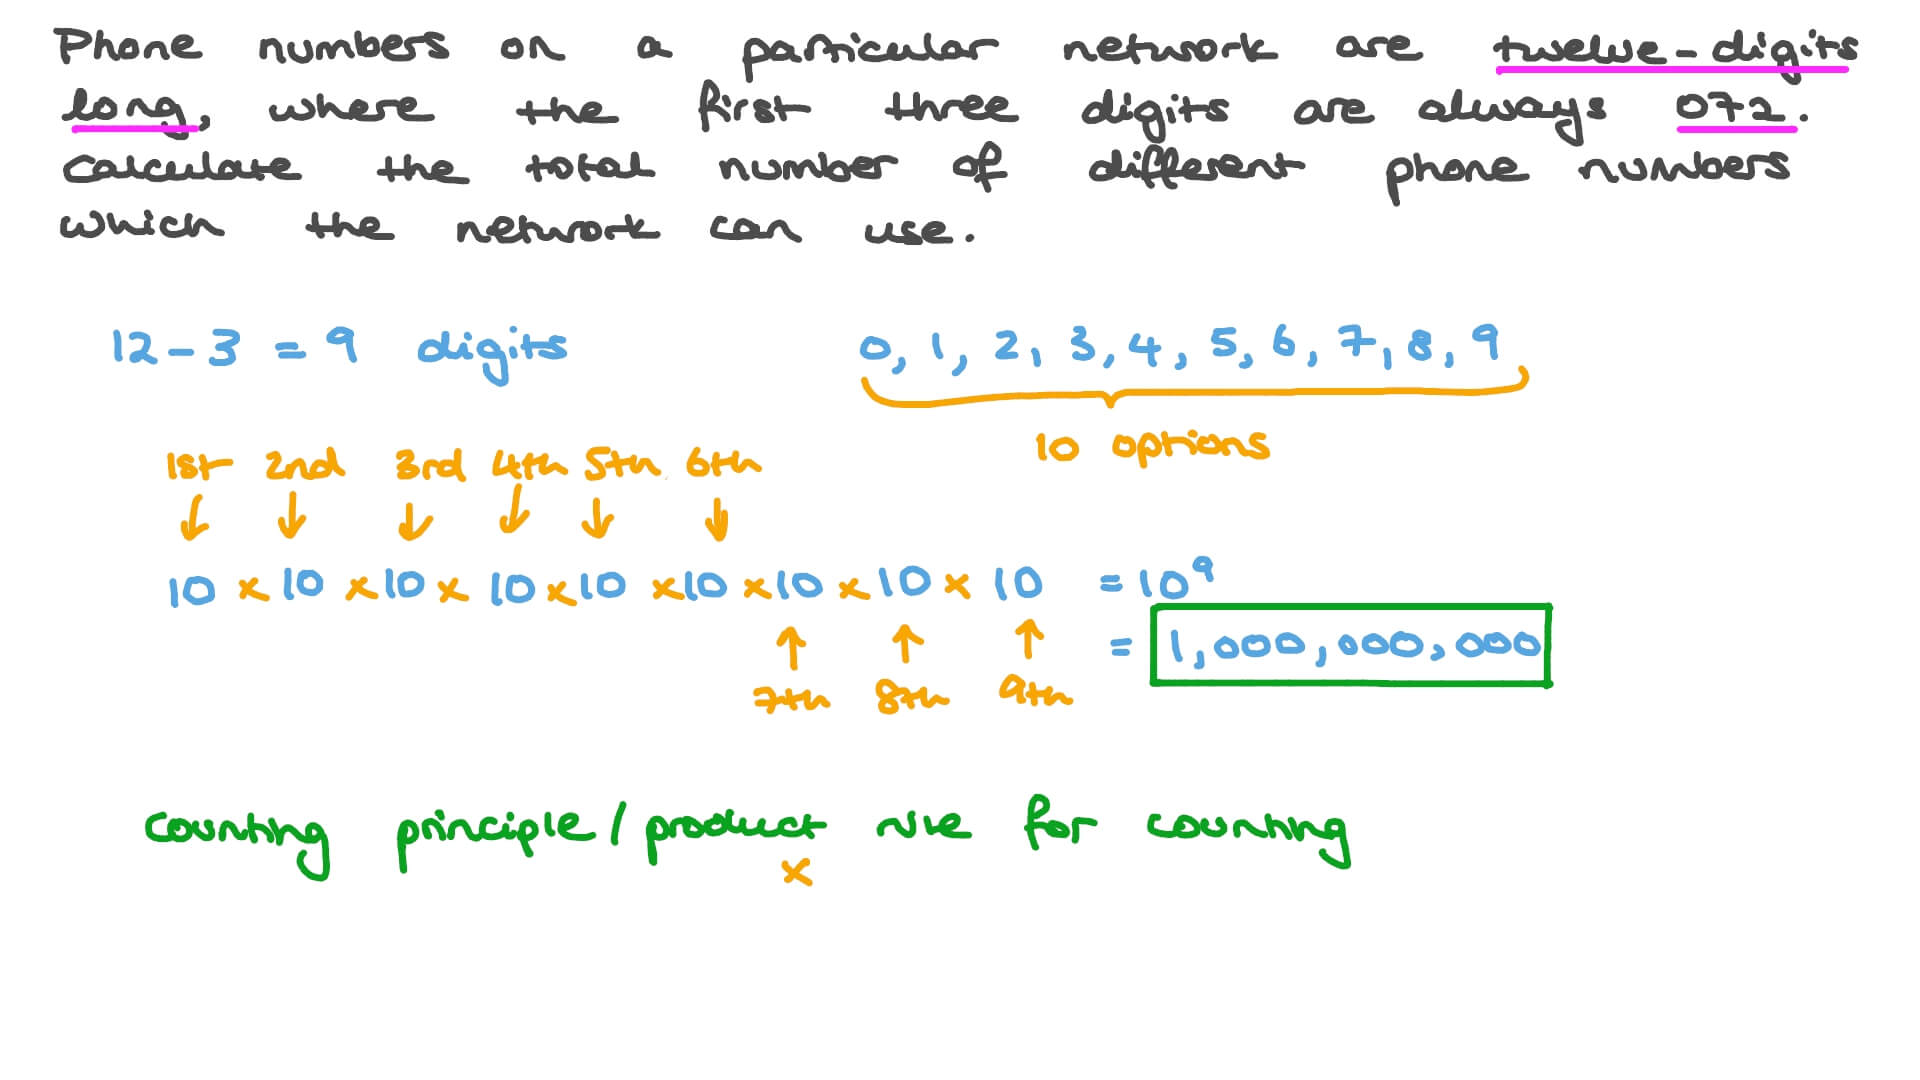 Phone numbers on a particular network are twelve-digits
long, where the first three digits are always 072.
Calculate the total number of different phone numbers
which the network can use.
12 - 3 = 9 digits
0, 1, 2, 3, 4, 5, 6, 7, 8, 9
10 options
1st 2nd 3rd 4th 5th 6th
10 × 10 × 10 × 10 × 10 × 10 × 10 × 10 × 10 = 10⁹
= 1,000,000,000
7th 8th 9th
counting principle / product rule for counting
×